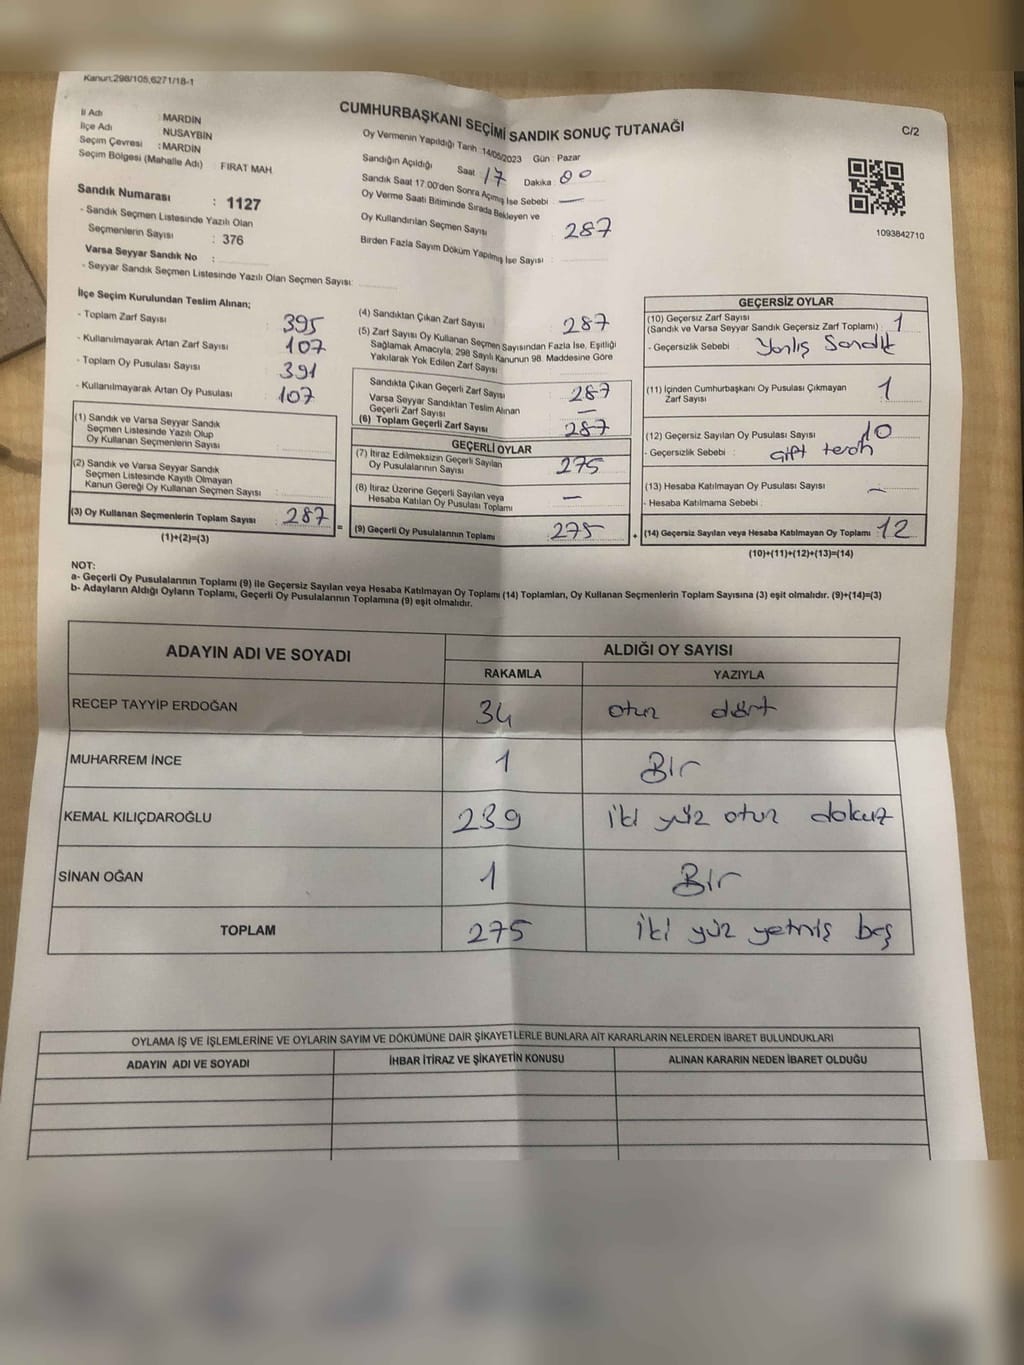 Kanun:298/105,6271/18-1
CUMHURBAŞKANI SEÇİMİ SANDIK SONUÇ TUTANAĞI
C/2
İl Adı : MARDİN
İlçe Adı NUSAYBİN
Seçim Çevresi : MARDİN
Seçim Bölgesi (Mahalle Adı) : FIRAT MAH
Sandık Numarası : 1127
- Sandık Seçmen Listesinde Yazılı Olan
Seçmenlerin Sayısı : 376
Varsa Seyyar Sandık No :
- Seyyar Sandık Seçmen Listesinde Yazılı Olan Seçmen Sayısı:
Oy Vermenin Yapıldığı Tarih :14/05/2023 Gün : Pazar
Sandığın Açıldığı Saat : 17 Dakika : 00
Sandık Saat 17.00'den Sonra Açmış İse Sebebi : —
Oy Verme Saati Bitiminde Sırada Bekleyen ve
Oy Kullandırılan Seçmen Sayısı : 287
Birden Fazla Sayım Döküm Yapılmış İse Sayısı
1093842710
İlçe Seçim Kurulundan Teslim Alınan;
- Toplam Zarf Sayısı : 395
- Kullanılmayarak Artan Zarf Sayısı : 107
- Toplam Oy Pusulası Sayısı : 391
- Kullanılmayarak Artan Oy Pusulası : 107
(1) Sandık ve Varsa Seyyar Sandık
Seçmen Listesinde Yazılı Olup
Oy Kullanan Seçmenlerin Sayısı :
(2) Sandık ve Varsa Seyyar Sandık
Seçmen Listesinde Kayıtlı Olmayan
Kanun Gereği Oy Kullanan Seçmen Sayısı :
(3) Oy Kullanan Seçmenlerin Toplam Sayısı : 287 =
(1)+(2)=(3)
(4) Sandıktan Çıkan Zarf Sayısı : 287
(5) Zarf Sayısı Oy Kullanan Seçmen Sayısından Fazla İse, Eşitliği
Sağlamak Amacıyla, 298 Sayılı Kanunun 98. Maddesine Göre
Yakılarak Yok Edilen Zarf Sayısı
Sandıkta Çıkan Geçerli Zarf Sayısı : 287
Varsa Seyyar Sandıktan Teslim Alınan
Geçerli Zarf Sayısı : —
(6) Toplam Geçerli Zarf Sayısı : 287
GEÇERLİ OYLAR
(7) İtiraz Edilmeksizin Geçerli Sayılan
Oy Pusulalarının Sayısı : 275
(8) İtiraz Üzerine Geçerli Sayılan veya
Hesaba Katılan Oy Pusulası Toplamı : —
(9) Geçerli Oy Pusulalarının Toplamı : 275 +
GEÇERSİZ OYLAR
(10) Geçersiz Zarf Sayısı
(Sandık ve Varsa Seyyar Sandık Geçersiz Zarf Toplamı) : 1
- Geçersizlik Sebebi : Yanlış Sandık
(11) İçinden Cumhurbaşkanı Oy Pusulası Çıkmayan
Zarf Sayısı : 1
(12) Geçersiz Sayılan Oy Pusulası Sayısı : 10
- Geçersizlik Sebebi : Çift tercih
(13) Hesaba Katılmayan Oy Pusulası Sayısı : —
- Hesaba Katılmama Sebebi :
(14) Geçersiz Sayılan veya Hesaba Katılmayan Oy Toplamı : 12
(10)+(11)+(12)+(13)=(14)
NOT:
a- Geçerli Oy Pusulalarının Toplamı (9) ile Geçersiz Sayılan veya Hesaba Katılmayan Oy Toplamı (14) Toplamları, Oy Kullanan Seçmenlerin Toplam Sayısına (3) eşit olmalıdır. (9)+(14)=(3)
b- Adayların Aldığı Oyların Toplamı, Geçerli Oy Pusulalarının Toplamına (9) eşit olmalıdır.
ADAYIN ADI VE SOYADI ALDIĞI OY SAYISI
RAKAMLA YAZIYLA
RECEP TAYYİP ERDOĞAN 34 otuz dört
MUHARREM İNCE 1 Bir
KEMAL KILIÇDAROĞLU 239 iki yüz otuz dokuz
SİNAN OĞAN 1 Bir
TOPLAM 275 iki yüz yetmiş beş
OYLAMA İŞ VE İŞLEMLERİNE VE OYLARIN SAYIM VE DÖKÜMÜNE DAİR ŞİKAYETLERLE BUNLARA AİT KARARLARIN NELERDEN İBARET BULUNDUKLARI
ADAYIN ADI VE SOYADI İHBAR İTİRAZ VE ŞİKAYETİN KONUSU ALINAN KARARIN NEDEN İBARET OLDUĞU